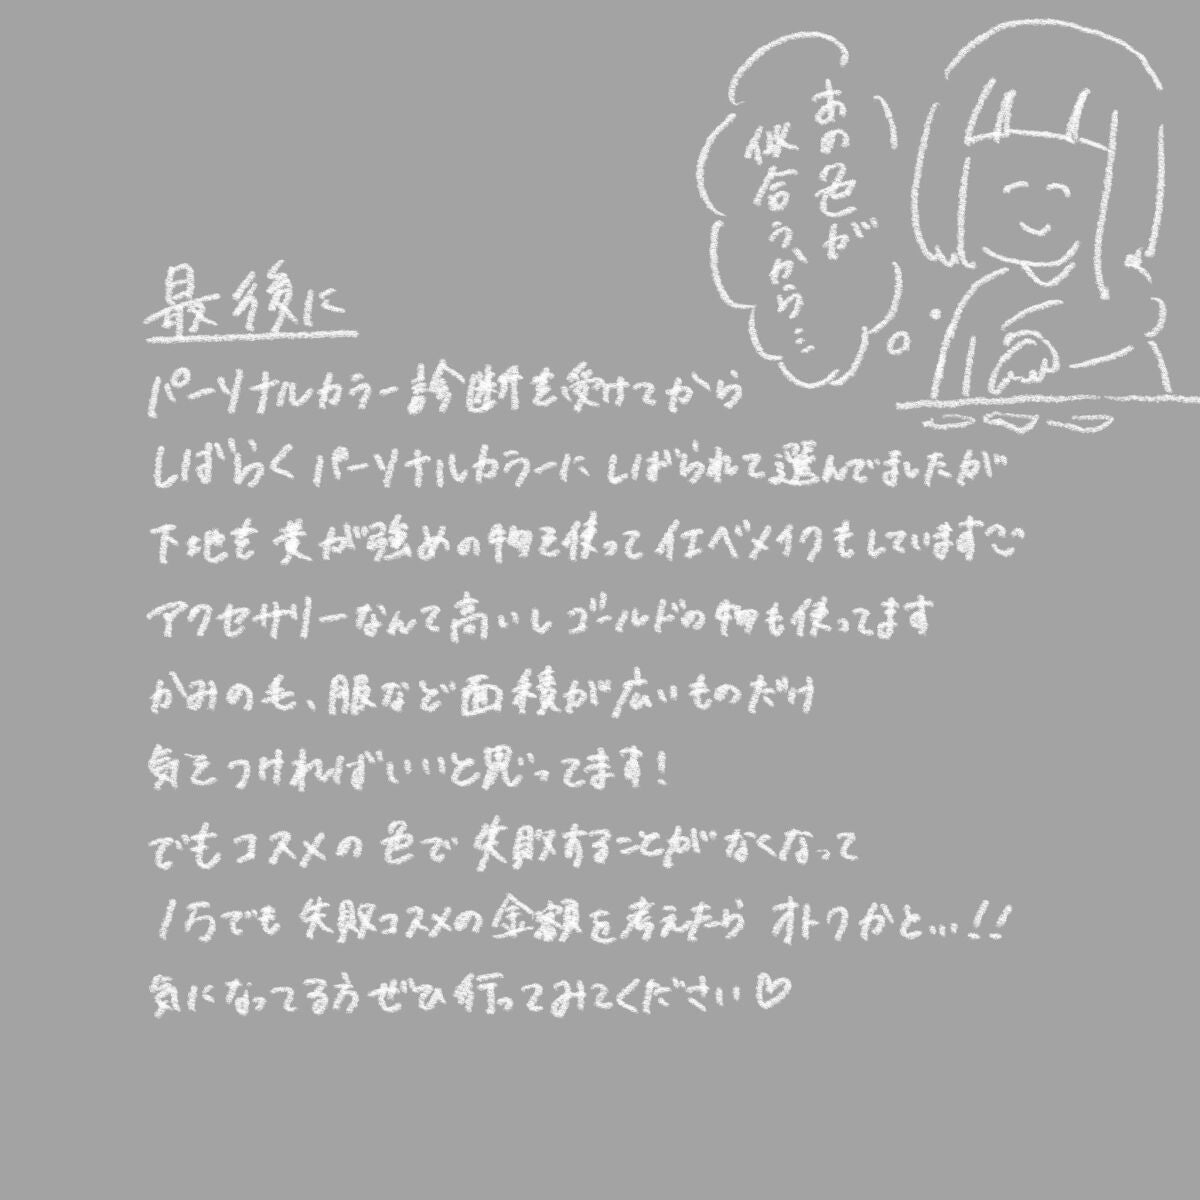 あの色が
似合うから…
最後に
パーソナルカラー診断を受けてから
しばらくパーソナルカラーにしばられて選んでましたが
下地を黄が強めの物を使ってイエベメイクもしています
アクセサリーなんて高いしゴールドの物も使ってます
かみのも、服など面積が広いものだけ
気をつければいいと思ってます!
でもコスメの色で失敗することがなくなって
1万でも失敗コスメの金額を考えたら オトクかと…!!
気になってる方ぜひ行ってみてください♡